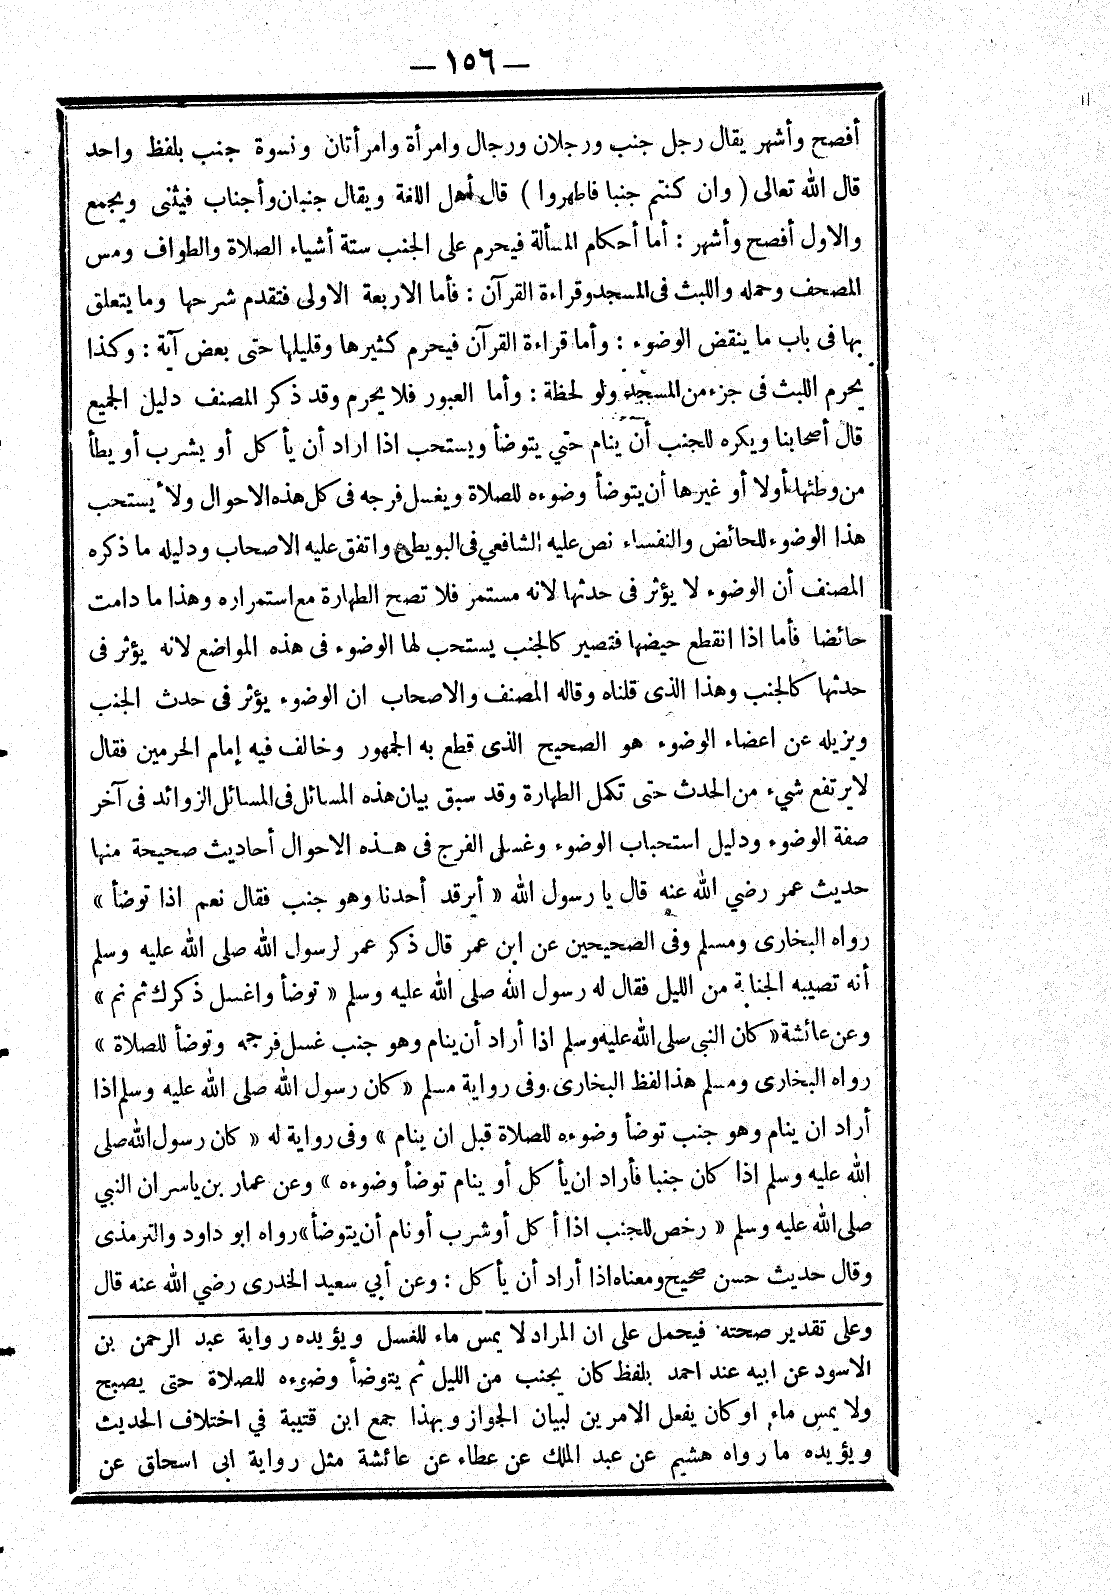 — ١٥٦ —
أفصح وأشهر يقال رجل جنب ورجلان ورجال وامرأة وامرأتان ونسوة جنب بلفظ واحد
قال الله تعالى ( وان كنتم جنبا فاطهروا ) قال أهل اللغة ويقال جنبان وأجناب فيثنى ويجمع
والاول أفصح وأشهر : أما أحكام المسألة فيحرم على الجنب ستة أشياء الصلاة والطواف ومس
المصحف وحمله واللبث فى المسجد وقراءة القرآن : فأما الاربعة الاولى فتقدم شرحها وما يتعلق
بها فى باب ما ينقض الوضوء : وأما قراءة القرآن فيحرم كثيرها وقليلها حتى بعض آية : وكذا
يحرم اللبث فى جزء من المسجد ولو لحظة : وأما العبور فلا يحرم وقد ذكر المصنف دليل الجميع
قال أصحابنا ويكره للجنب أن ينام حتي يتوضأ ويستحب اذا اراد أن يأكل أو يشرب أو يطأ
من وطئها أولا أو غيرها أن يتوضأ وضوءه للصلاة ويغسل فرجه فى كل هذه الاحوال ولا يستحب
هذا الوضوء للحائض والنفساء نص عليه الشافعي فى البويطي واتفق عليه الاصحاب ودليله ما ذكره
المصنف أن الوضوء لا يؤثر فى حدثها لانه مستمر فلا تصح الطهارة مع استمراره وهذا ما دامت
حائضا فأما اذا انقطع حيضها فتصير كالجنب يستحب لها الوضوء فى هذه المواضع لانه يؤثر فى
حدثها كالجنب وهذا الذى قلناه وقاله المصنف والاصحاب ان الوضوء يؤثر فى حدث الجنب
ويزيله عن اعضاء الوضوء هو الصحيح الذى قطع به الجمهور وخالف فيه إمام الحرمين فقال
لا يرتفع شيء من الحدث حتى تكمل الطهارة وقد سبق بيان هذه المسائل فى المسائل الزوائد فى آخر
صفة الوضوء ودليل استحباب الوضوء وغسل الفرج فى هذه الاحوال أحاديث صحيحة منها
حديث عمر رضي الله عنه قال يا رسول الله « أيرقد أحدنا وهو جنب فقال نعم اذا توضأ »
رواه البخارى ومسلم وفى الصحيحين عن ابن عمر قال ذكر عمر لرسول الله صلى الله عليه وسلم
أنه تصيبه الجنابة من الليل فقال له رسول الله صلى الله عليه وسلم « توضأ واغسل ذكرك ثم نم »
وعن عائشة « كان النبى صلى الله عليه وسلم اذا أراد أن ينام وهو جنب غسل فرجه وتوضأ للصلاة »
رواه البخارى ومسلم هذا لفظ البخارى وفى رواية مسلم « كان رسول الله صلى الله عليه وسلم اذا
أراد ان ينام وهو جنب توضأ وضوءه للصلاة قبل ان ينام » وفى رواية له « كان رسول الله صلى
الله عليه وسلم اذا كان جنبا فأراد ان يأكل أو ينام توضأ وضوءه » وعن عمار بن ياسر ان النبي
صلى الله عليه وسلم « رخص للجنب اذا أكل أو شرب أو نام أن يتوضأ » رواه ابو داود والترمذى
وقال حديث حسن صحيح ومعناه اذا أراد أن يأكل : وعن أبي سعيد الخدرى رضي الله عنه قال
وعلى تقدير صحته فيحمل على ان المراد لا يمس ماء للغسل ويؤيده رواية عبد الرحمن بن
الاسود عن ابيه عند احمد بلفظ كان يجنب من الليل ثم يتوضأ وضوءه للصلاة حتى يصبح
ولا يمس ماء او كان يفعل الامرين لبيان الجواز وبهذا جمع ابن قتيبة في اختلاف الحديث
ويؤيده ما رواه هشيم عن عبد الملك عن عطاء عن عائشة مثل رواية ابى اسحاق عن